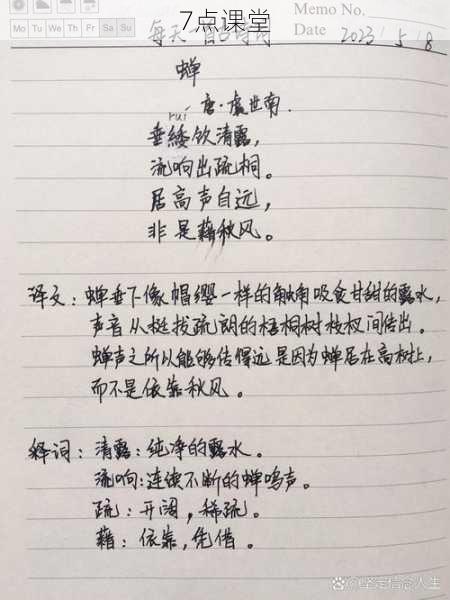 7点课堂
Memo No.
Mo Tu We Th Fr Sa Su
Date 2023 / 5 / 8
每天一首古诗词
蝉
唐·虞世南.
ruí
垂緌饮清露,
流响出疏桐。
居高声自远,
非是藉秋风。
译文:蝉垂下像帽缨一样的触角吸食甘甜的露水,
声音从挺拔疏朗的梧桐树枝杈间传出。
蝉声之所以能够传得远是因为蝉居在高树上,
而不是依靠秋风。
释词:清露:纯净的露水。
流响:连续不断的蝉鸣声。
疏:开阔,稀疏。
藉:依靠,凭借。
@坚定信念人生